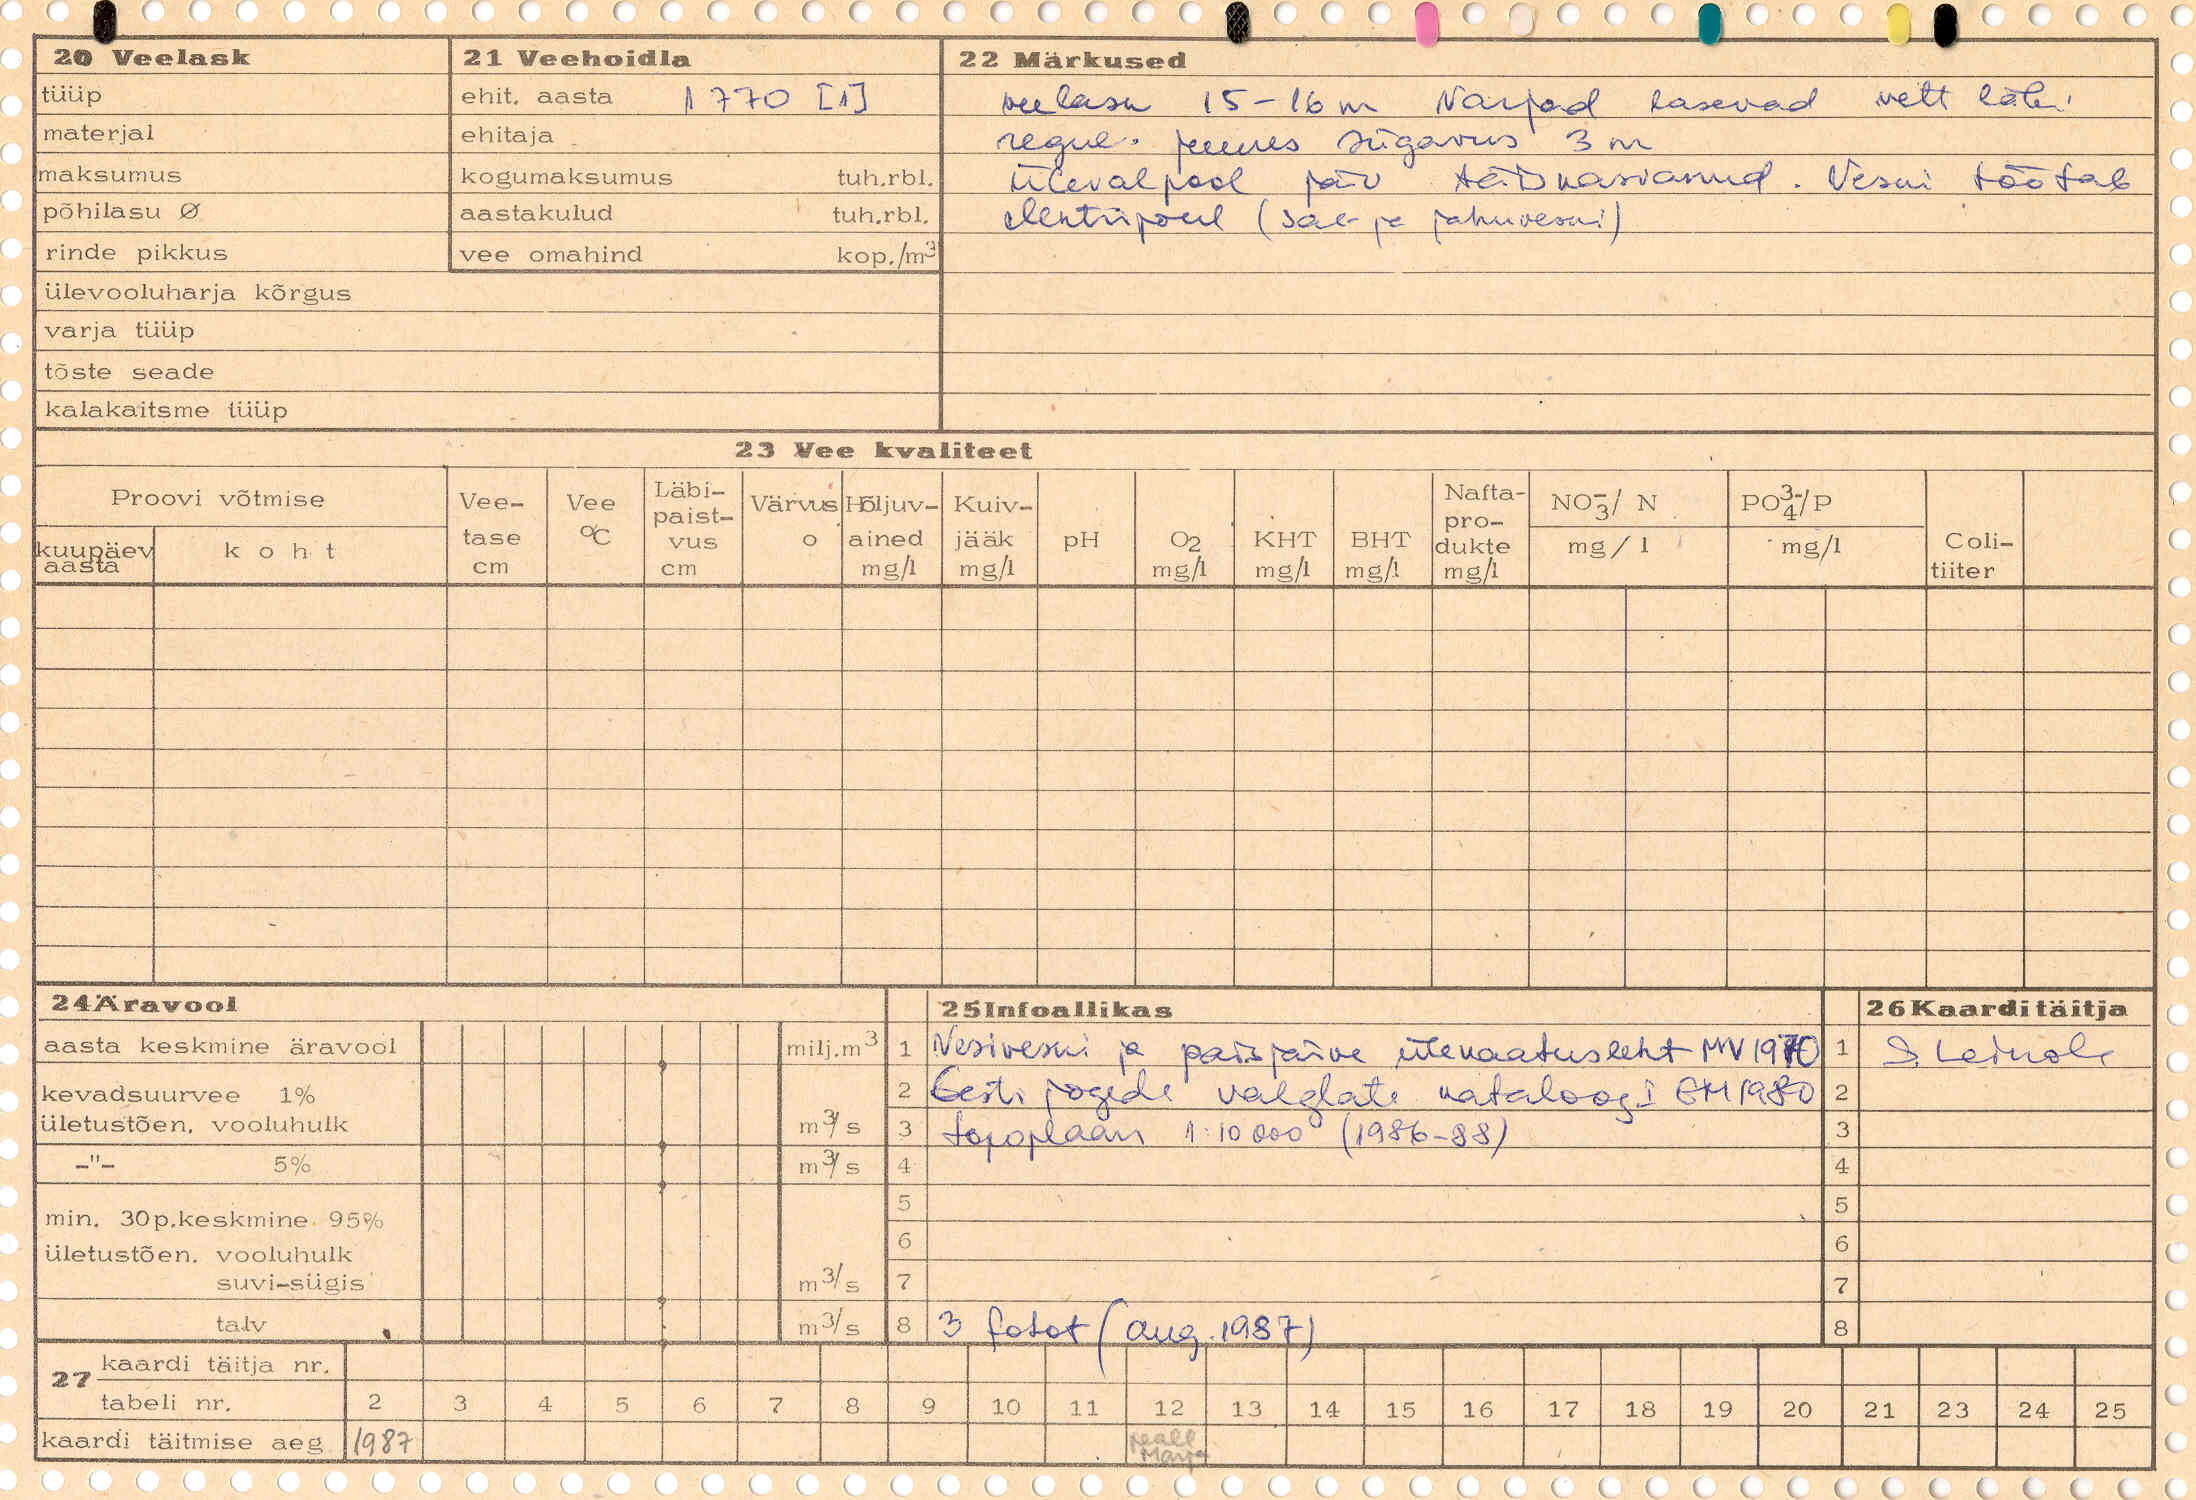 20 Veelask
tüüp
materjal
maksumus
põhilasu Ø
rinde pikkus
ülevooluharja kõrgus
varja tüüp
tõste seade
kalakaitsme tüüp
21 Veehoidla
ehit. aasta 1770 [1]
ehitaja
kogumaksumus tuh.rbl.
aastakulud tuh.rbl.
vee omahind kop./m3
22 Märkused
veelask 15-16 m Varjad lasevad vett läbi
regul. juures sügavus 3 m
ülevalpool järv täiskasvanud. Veski töötab
elektrijõul (sae- ja jahuveski)
23 Vee kvaliteet
Proovi võtmise
kuupäev aasta
koht
Vee-tase cm
Vee °C
Läbi-paist-vus cm
Värvus o
Hõljuv-ained mg/l
Kuiv-jääk mg/l
pH
O2 mg/l
KHT mg/l
BHT mg/l
Nafta-pro-dukte mg/l
NO3-/ N mg/l
PO43-/P mg/l
Coli-tiiter
24 Äravool
aasta keskmine äravool milj.m3
kevadsuurvee 1%
ületustõen. vooluhulk m3/s
-"- 5% m3/s
min. 30p.keskmine 95%
ületustõen. vooluhulk
suvi-sügis m3/s
talv m3/s
25 Infoallikas
1 Vesiveski ja paisjärve ülevaatusleht MV 1970
2 Eesti jõgede valglate kataloog I EM 1980
3 topoplaan 1:10 000 (1986-88)
4
5
6
7
8 3 fotot (aug. 1987)
26 Kaardi täitja
1 S. Leinola
2
3
4
5
6
7
8
27 kaardi täitja nr.
tabeli nr. 2 3 4 5 6 7 8 9 10 11 12 13 14 15 16 17 18 19 20 21 23 24 25
kaardi täitmise aeg 1987